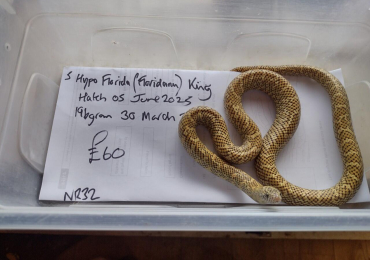 S Hypo Florida (Floridana) King
Hatch 05 June 2025
196gram 30 March
£60
NR32